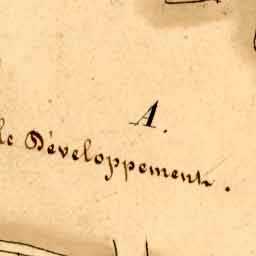 A.
le Développement.